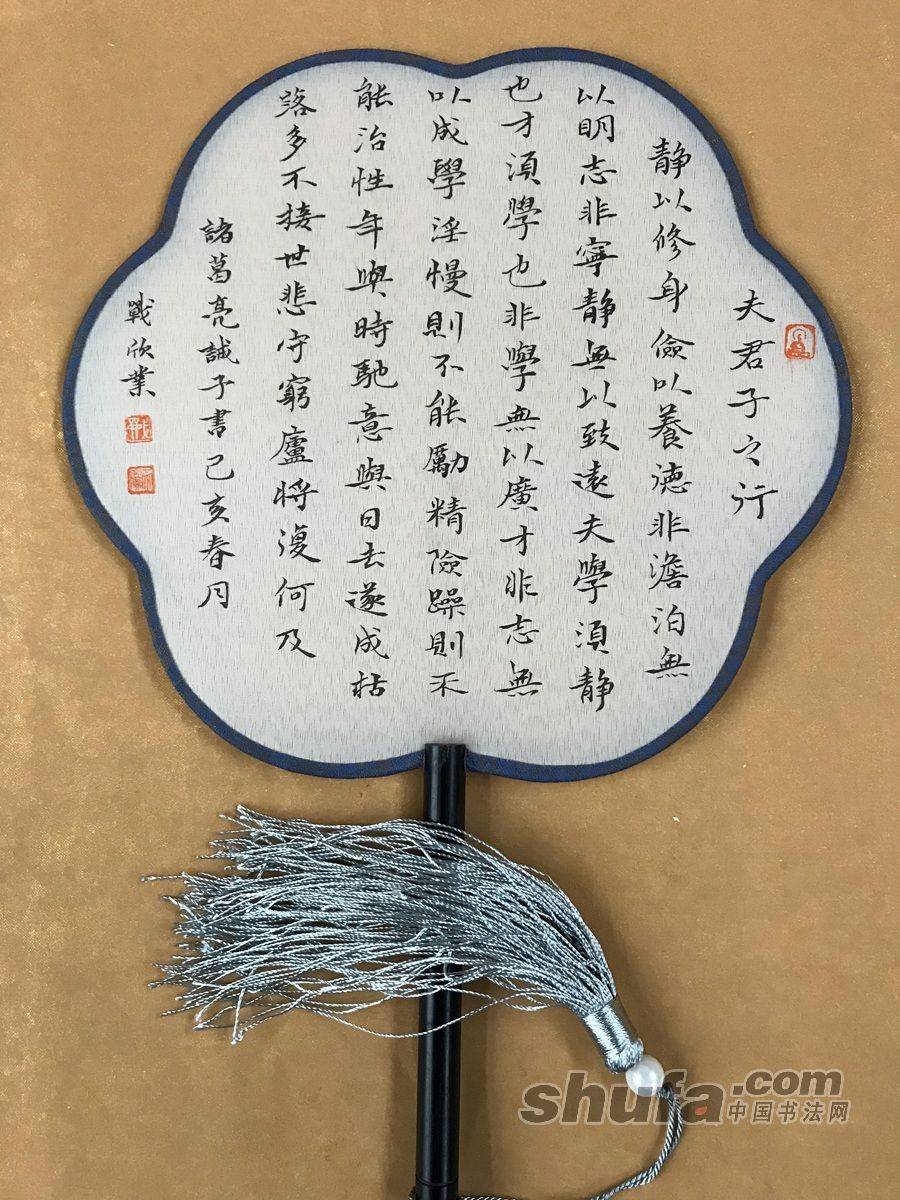 夫君子之行
静以修身儉以養德非澹泊無
以明志非寧静無以致遠夫學須静
也才須學也非學無以廣才非志無
以成學淫慢則不能勵精險躁則不
能治性年與時馳意與日去遂成枯
落多不接世悲守窮廬將復何及
諸葛亮誡子書己亥春月
戰欣業
shufa.com
中国书法网